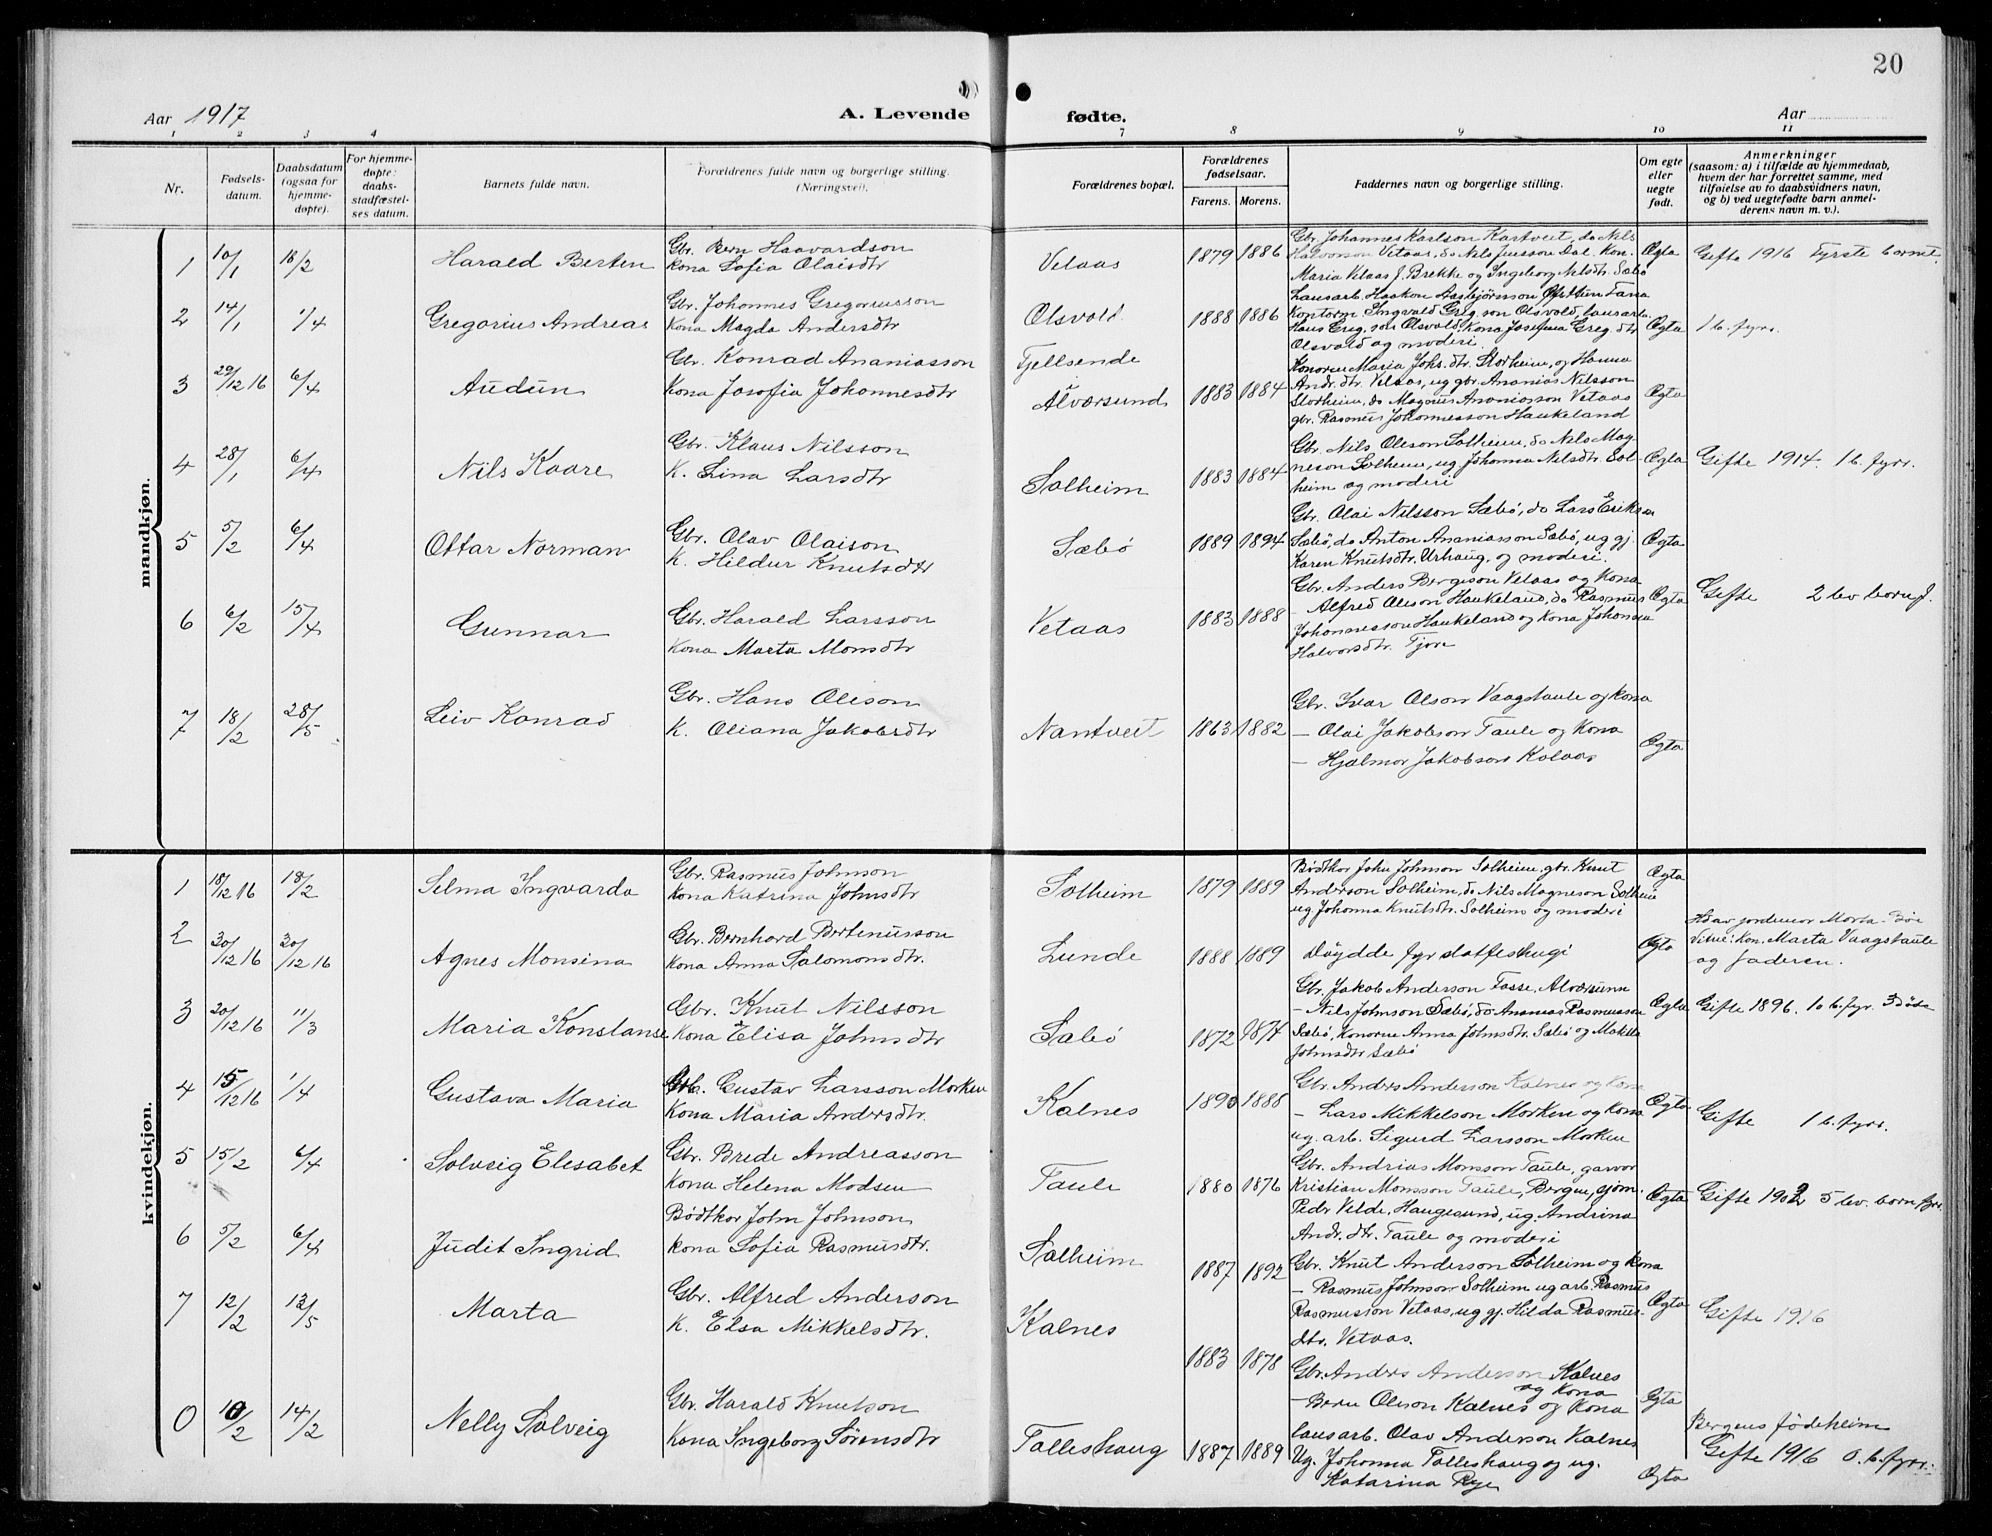 20
Aar 1917
A. Levende
fødte.
Aar
1 2 3 4 7 8 9 10 11
Nr.
Fødsels-
datum.
Daabsdatum
(ogsaa for
hjemme-
døpte).
For hjemme-
døpte:
daabs-
stadfæstel-
ses datum.
Barnets fulde navn.
Forældrenes fulde navn og borgerlige stilling.
(Næringsvei).
Forældrenes bopæl.
Forældrenes
fødselsaar.
Farens. Morens.
Faddernes navn og borgerlige stilling.
Om egte
eller
uegte
født.
Anmerkninger
(saasom: a) i tilfælde av hjemmedaab,
hvem der har forrettet samme, med
tilføielse av to daabsvidners navn,
og b) ved uegtefødte barn anmel-
derens navn m. v.).
mandkjøn.
1 10/1 18/2 Harald Berten
Gbr. Bern Haavardson
Kona Sofia Olaisdtr
Vetaas 1879 1886
Gbr. Johannes Karlson Kartveit, do Nils
Halvorson Vetaas, do Nils Jensson Dal. Kon.
Maria Vetaas J. Brekke og Ingeborg Nilsdtr. Sæbø
Ægta Gifte 1916 Fyrste barnet.
2 14/1 1/4 Gregorius Andreas
Gbr. Johannes Gregoriusson
Kona Magda Andersdtr
Olsvold 1888 1886
Lausarb. Haakon Aasbjørnsson Øfsttun Fana
Kontorm Ingvald Greg. son Olsvold, lausarb.
Hans Greg. son Olsvold, Kona Josefina Greg. dtr
Olsvold og moderi.
Ægta 1 b. fyrr.
3 29/12 16 6/4 Audun
Gbr. Konrad Ananiasson
Kona Josofia Johannesdtr
Fjellsende
Alværsund 1883 1884
Konorne Maria Johs. dtr. Storheim, og Hanna
Andr. dtr. Vetaas, ug gbr. Ananias Nilsson
Storheim, do Magnus Ananiasson Vetaas
gbr. Rasmus Johannesson Haukeland
Ægta
4 28/1 6/4 Nils Kaare
Gbr. Klaus Nilsson
K. Lina Larsdtr
Solheim 1883 1884
Gbr. Nils Oleson Solheim, do Nils Mag-
neson Solheim, ug Johanna Nilsdtr. Sol-
heim og moderi
Ægta Gifte 1914. 1 b. fyrr.
5 5/2 6/4 Ottar Norman
Gbr. Olav Olaison
K. Hildur Knutsdtr
Sæbø 1889 1894
Gbr. Olai Nilsson Sæbø, do Lars Erikson
Sæbø, do Anton Ananiasson Sæbø, ug gj.
Karen Knutsdtr. Urhaug, og moderi.
Ægta
6 6/2 15/4 Gunnar
Gbr. Harald Larsson
Kona Marta Monsdtr
Vetaas 1883 1888
Gbr. Anders Bergeson Vetaas og Kona
- Alfred Oleson Haukeland, do Rasmus
Johannesson Haukeland og Kona Johanna
Halvorsdtr. Fjon
Ægta Gifte 2 lev born f.
7 18/2 28/5 Leiv Konrad
Gbr. Hans Oleson
K. Oliana Jakobsdtr
Nantveit 1863 1882
Gbr. Ivar Olson Vaagstaule og Kona
- Olai Jakobson Taule og Kona
- Hjalmor Jakobson Kolaas
Ægta
kvindekjøn.
1 18/12 16 18/2 Selma Ingvarda
Gbr. Rasmus Johnson
Kona Katrina Johnsdtr
Solheim 1879 1889
Bødtkor John Johnson Solheim, gbr. Knut
Anderson Solheim, do Nils Magneson Solheim
ug. Johanna Knutsdtr. Solheim og moderi
Ægta
2 30/12 16 30/12 16 Agnes Monsina
Gbr. Bernhard Bertenusson
Kona Anna Salomonsdtr.
Lunde 1888 1889
Døydde fyr statfeshugi
Ægta
av jordemor Marta
Vitne: Kon. Marta Vaagstaule
og faderen.
3 20/12 16 11/3 Maria Konstanse
Gbr. Knut Nilsson
Kona Elisa Johnsdtr
Sæbø 1872 1874
Gbr. Jakob Anderson Fosse, Alværsund
- Nils Johnson Sæbø, do Ananias Rasmusson
Sæbø, Konorne Anna Johnsdtr. Sæbø og Makle
Johnsdtr Sæbø
Ægta Gifte 1896. 10 b. fyr. 3 døde
4 15/12 16 1/4 Gustava Maria
Gustav Larsson Morken
Kona Maria Andersdtr.
Kalnes 1890 1888
Gbr. Andrs Anderson Kalnes og Kona
- Lars Mikkelson Morken og Kona
ug. arb. Sigurd Larsson Morken
Ægta Gifte 1 b. fyrr.
5 15/2 6/4 Solveig Elesabet
Gbr. Brede Andreasson
Kona Helena Madsen
Taule 1880 1876
Gbr. Andrias Monsson Taule, garvor
Kristian Monsson Taule, Bergen, sjøm.
Pedr Velde, Haugesund, ug. Andrina
Andr. dtr. Taule og moderi
Ægta Gifte 1902 5 lev. born fyrr.
6 5/2 6/4 Judit Ingrid
Bødtkor John Johnson
Kona Sofia Rasmusdtr.
Solheim 1887 1892
Gbr. Knut Anderson Solheim og Kona
- Rasmus Johnson Solheim ug arb. Rasmus
Rasmusson Vetaas, ug gj. Hilda Rasmus-
dtr. Vetaas.
Ægta Gifte 1916
7 12/2 13/5 Marta
Gbr. Alfred Anderson
K. Elsa Mikkelsdtr.
Kalnes 1883 1878
Gbr. Andrs Anderson Kalnes
og Kona
- Bern Olsson Kalnes og Kona
lausarb. Olav Anderson Kalnes
Ægta
0 10/2 14/2 Nelly Solveig
Gbr. Harald Knutson
Kona Ingeborg Sørensdtr
Tolleshaug 1887 1889
Ug. Johanna Tolleshaug og ug.
Katarina Rye
Ægta
Bergens fødeheim
Gifte 1916 0. b. fyrr.